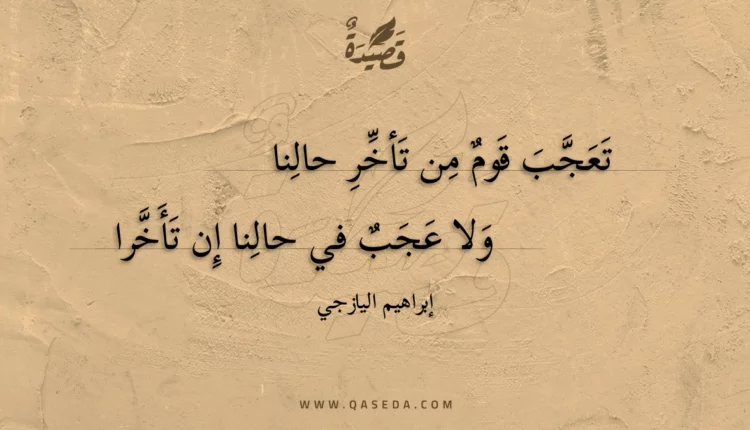 قَصِيدَةٌ
تَعَجَّبَ قَومٌ مِن تَأخِّرِ حالِنا
وَلا عَجَبٌ في حالِنا إِن تَأَخَّرا
إبراهيم اليازجي
WWW.QASEDA.COM